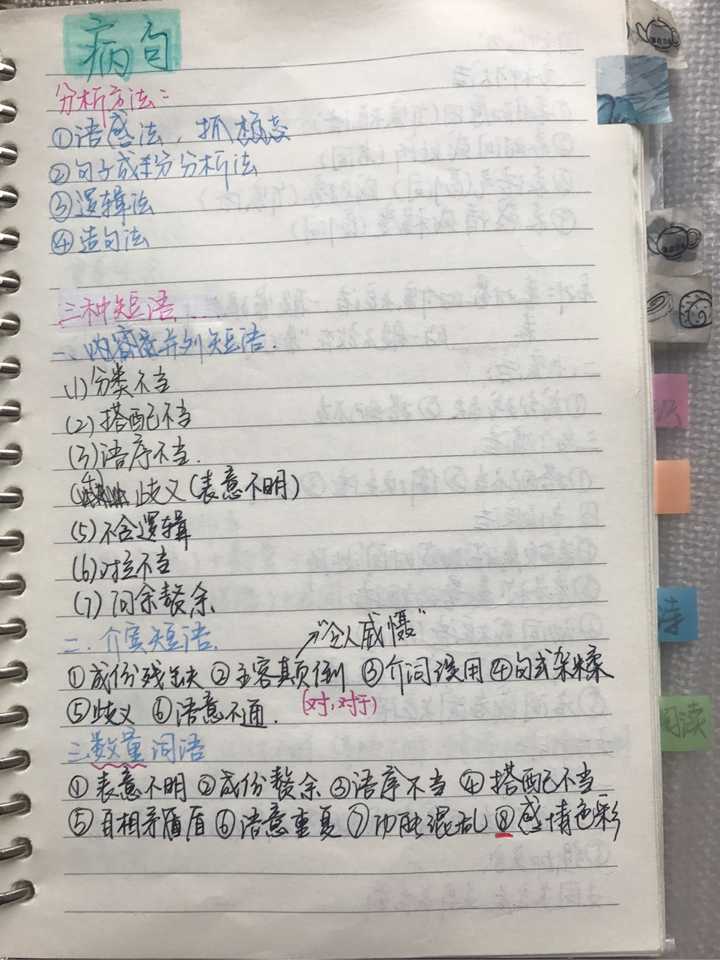 病句
分析方法：
①语感法，抓模态
②句子成分分析法
③逻辑法
④造句法
三种短语
一、内容并列短语.
(1)分类不当
(2)搭配不当
(3)语序不当.
(4) 歧义(表意不明)
(5)不合逻辑
(6)对应不当
(7) 赘余
二、介宾短语.
"令人威慑"
①成份残缺 ②主客颠倒 ③介词误用 ④句式杂糅
(对,对于)
⑤歧义 ⑥语意不通.
三.数量词语
①表意不明 ②成份赘余 ③语序不当 ④搭配不当
⑤自相矛盾 ⑥语意重复 ⑦功能混乱 ⑧感情色彩
诗
阅读